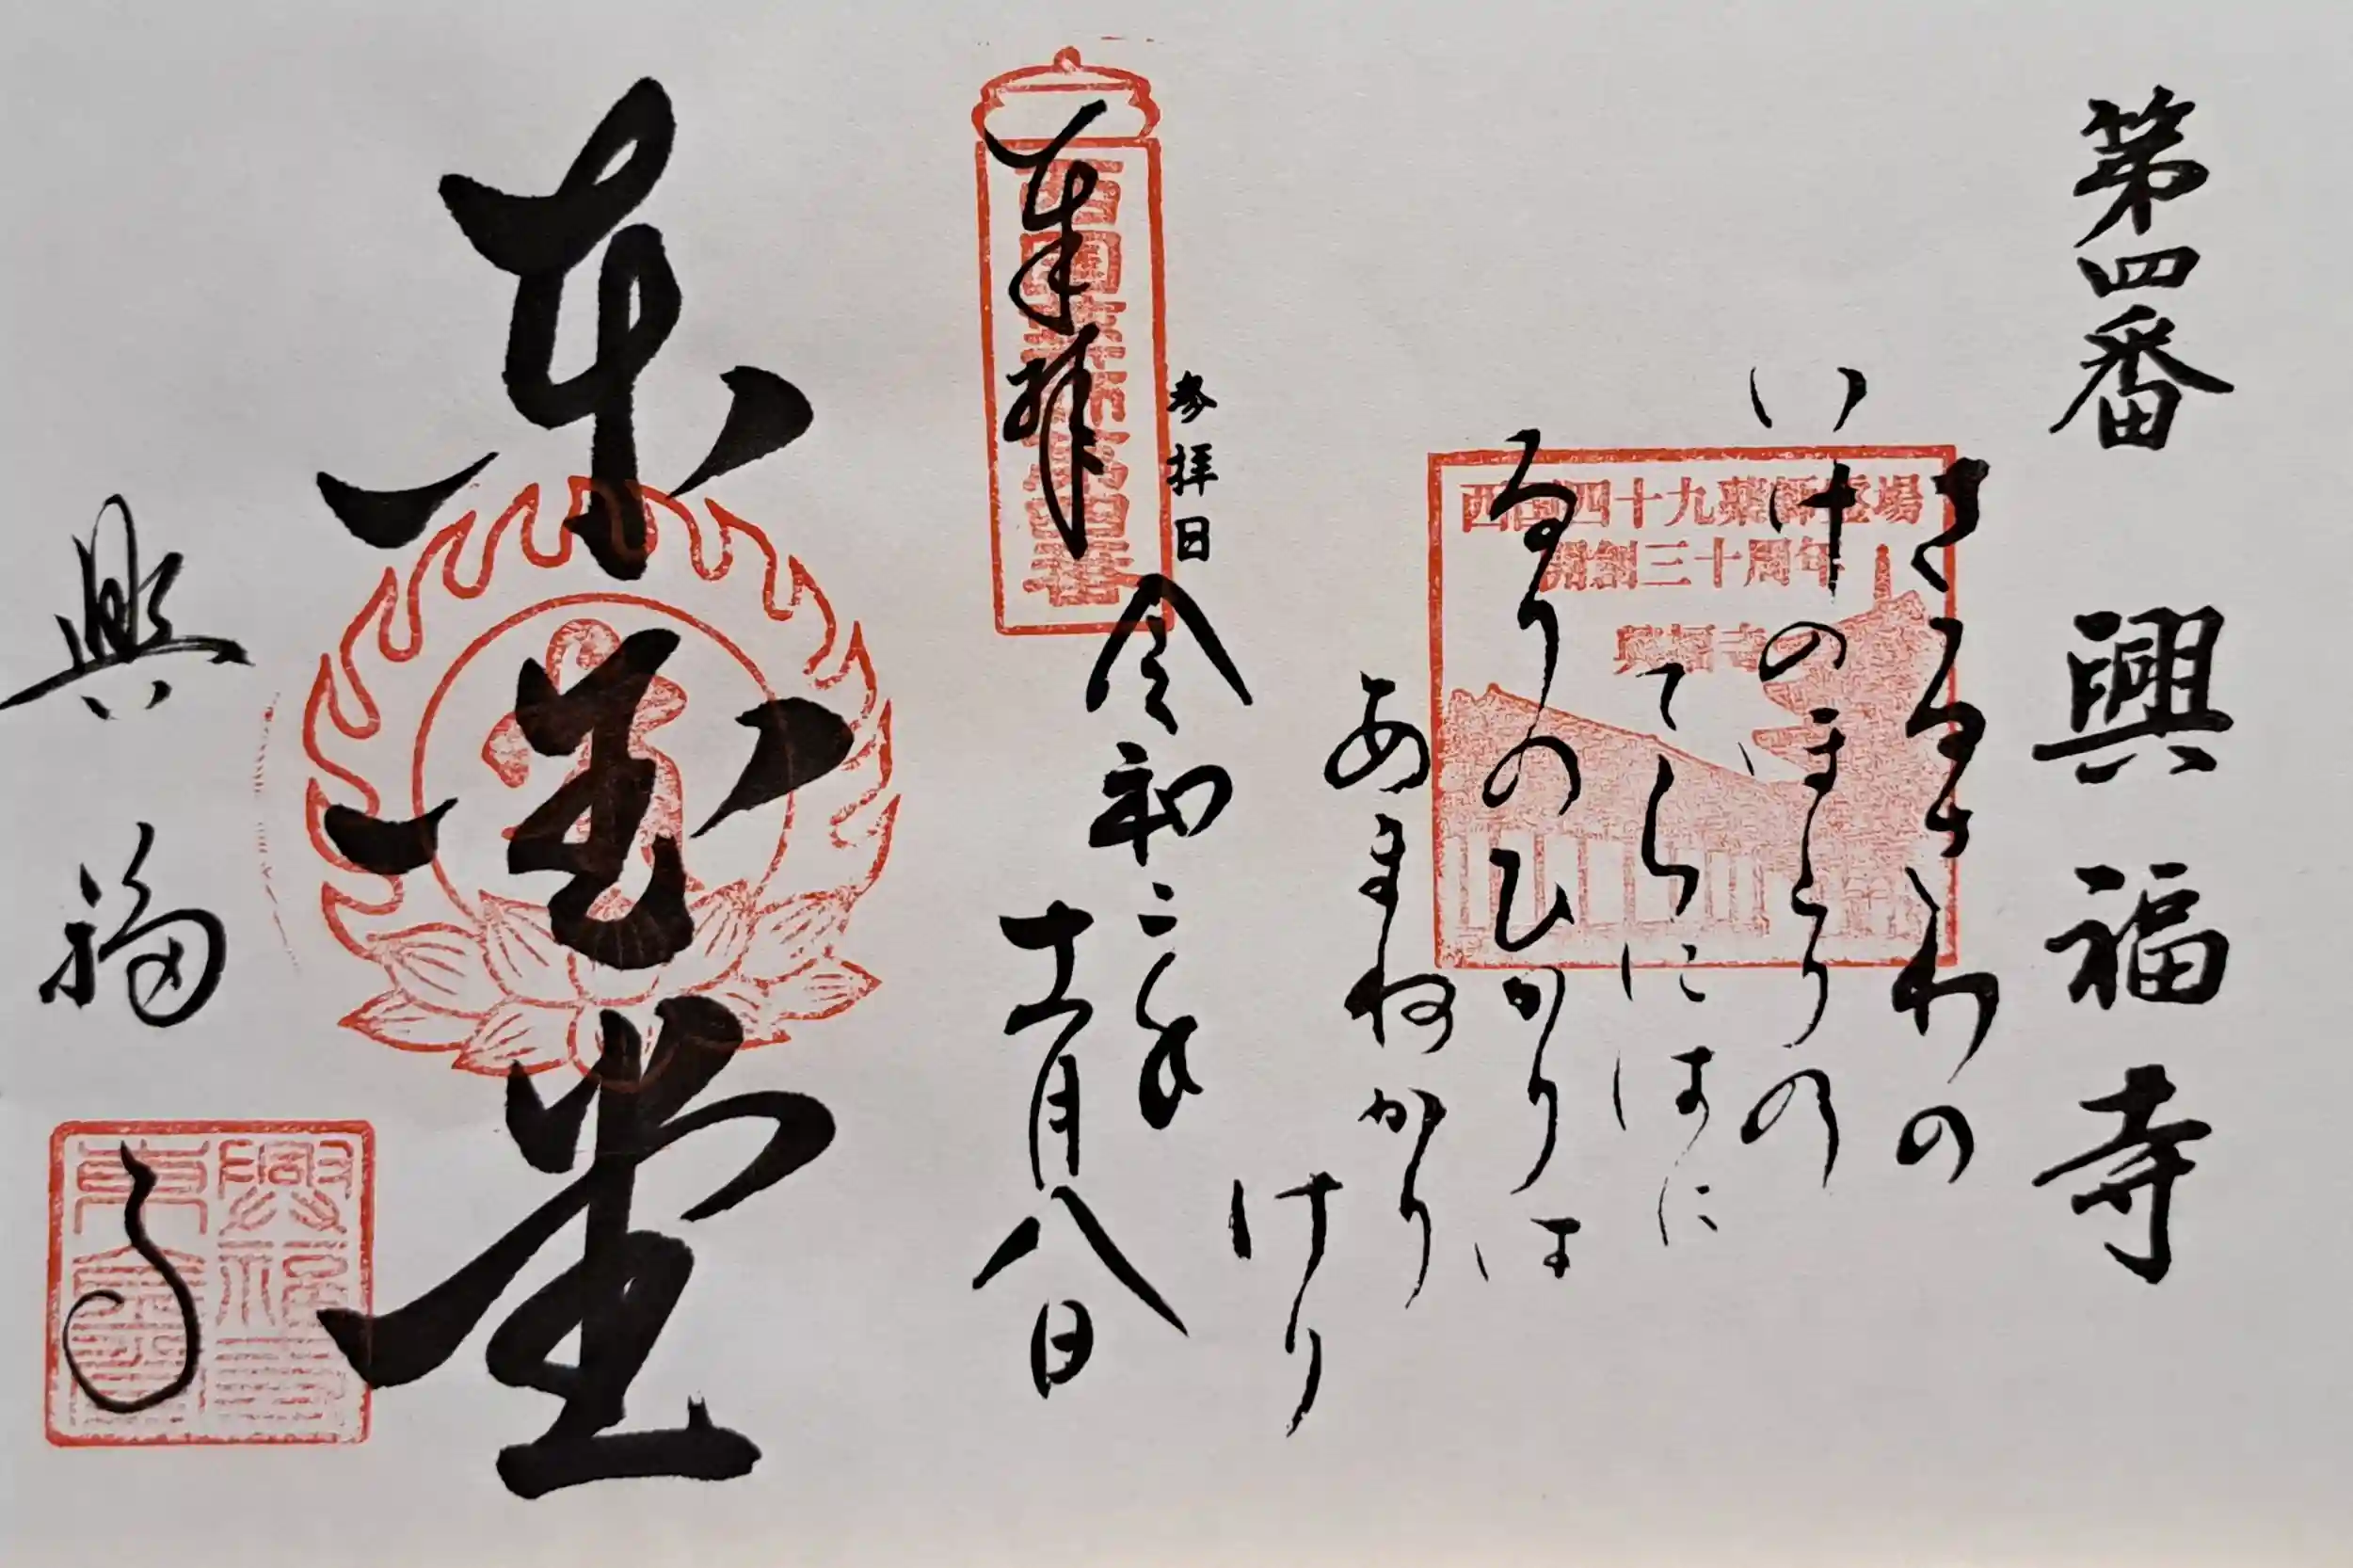 第四番 興福寺
西国四十九薬師霊場
開創三十周年
興福寺
さるさわの
いけのほとりの
てらにはに
るりのひかりは
あまねかり
けり
参拝日
令和二年
十一月八日
奉拝
東金堂
興福寺